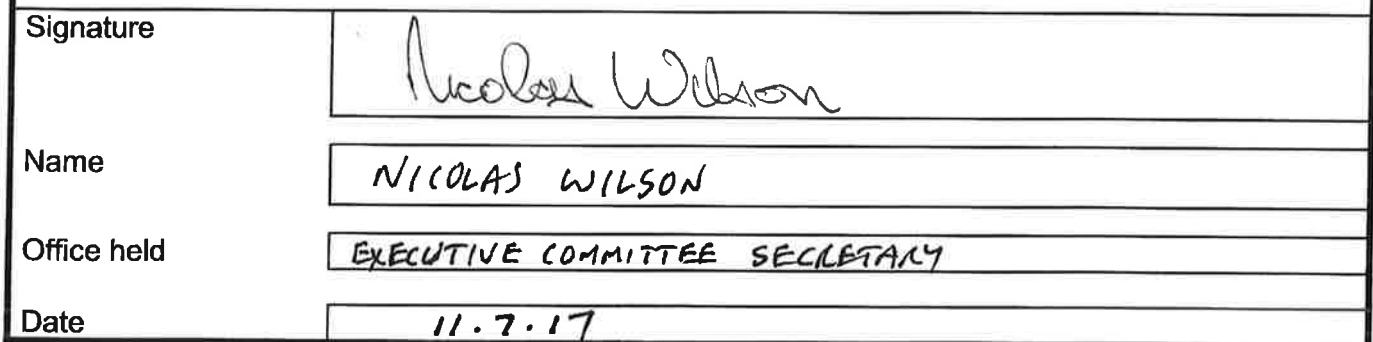 Signature
Nicolas Wilson
Name
NICOLAS WILSON
Office held
EXECUTIVE COMMITTEE SECRETARY
Date
11.7.17